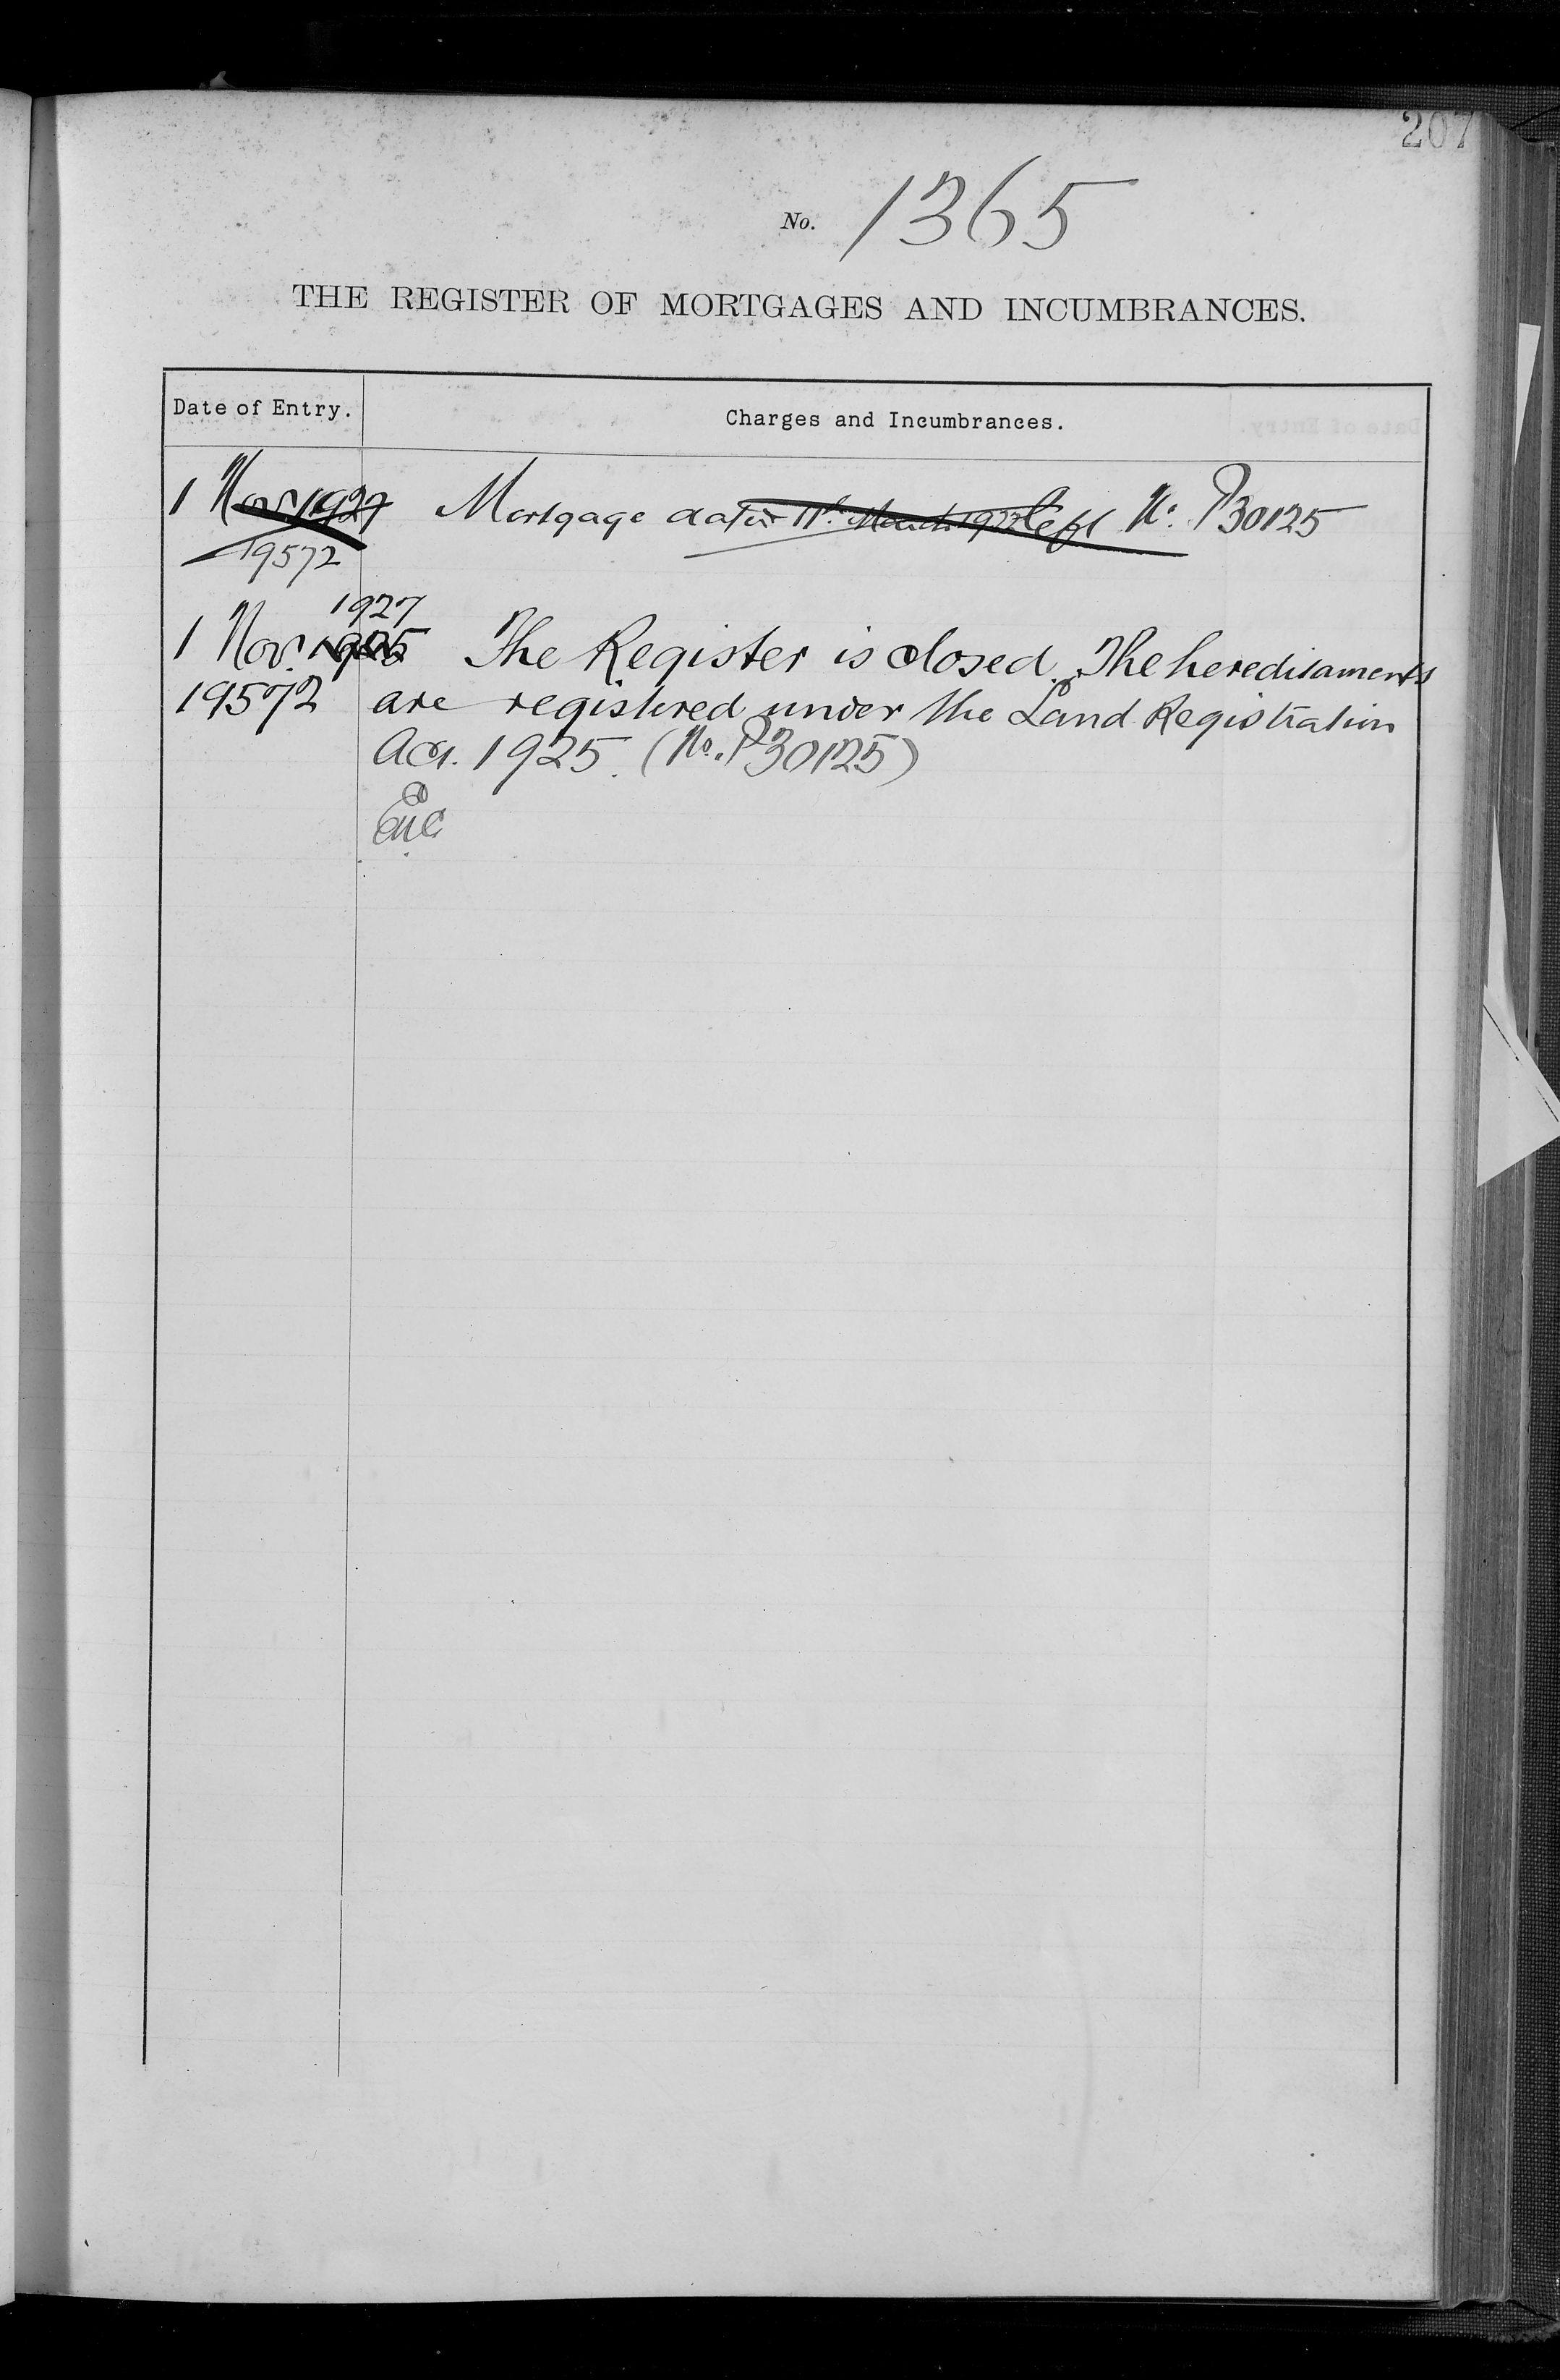 207
No. 1365
THE REGISTER OF MORTGAGES AND INCUMBRANCES.
Date of Entry. Charges and Incumbrances.
1 Nov 1927 Mortgage dated 11th March 1922 No. P30125
19572
1927
1 Nov. 1925 The Register is closed. The hereditaments
19572 are registered under the Land Registration
Act. 1925. (No. P30125)